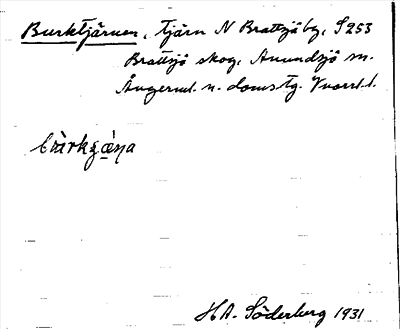 Burktjärnen, tjärn N Brattsjöby, S253
Brattsjö skog, Anundsjö sn.
Ångerml. n. domstg. Vnorrl.l.
bùrkɡæ̀ɳa
H.A. Söderberg 1931